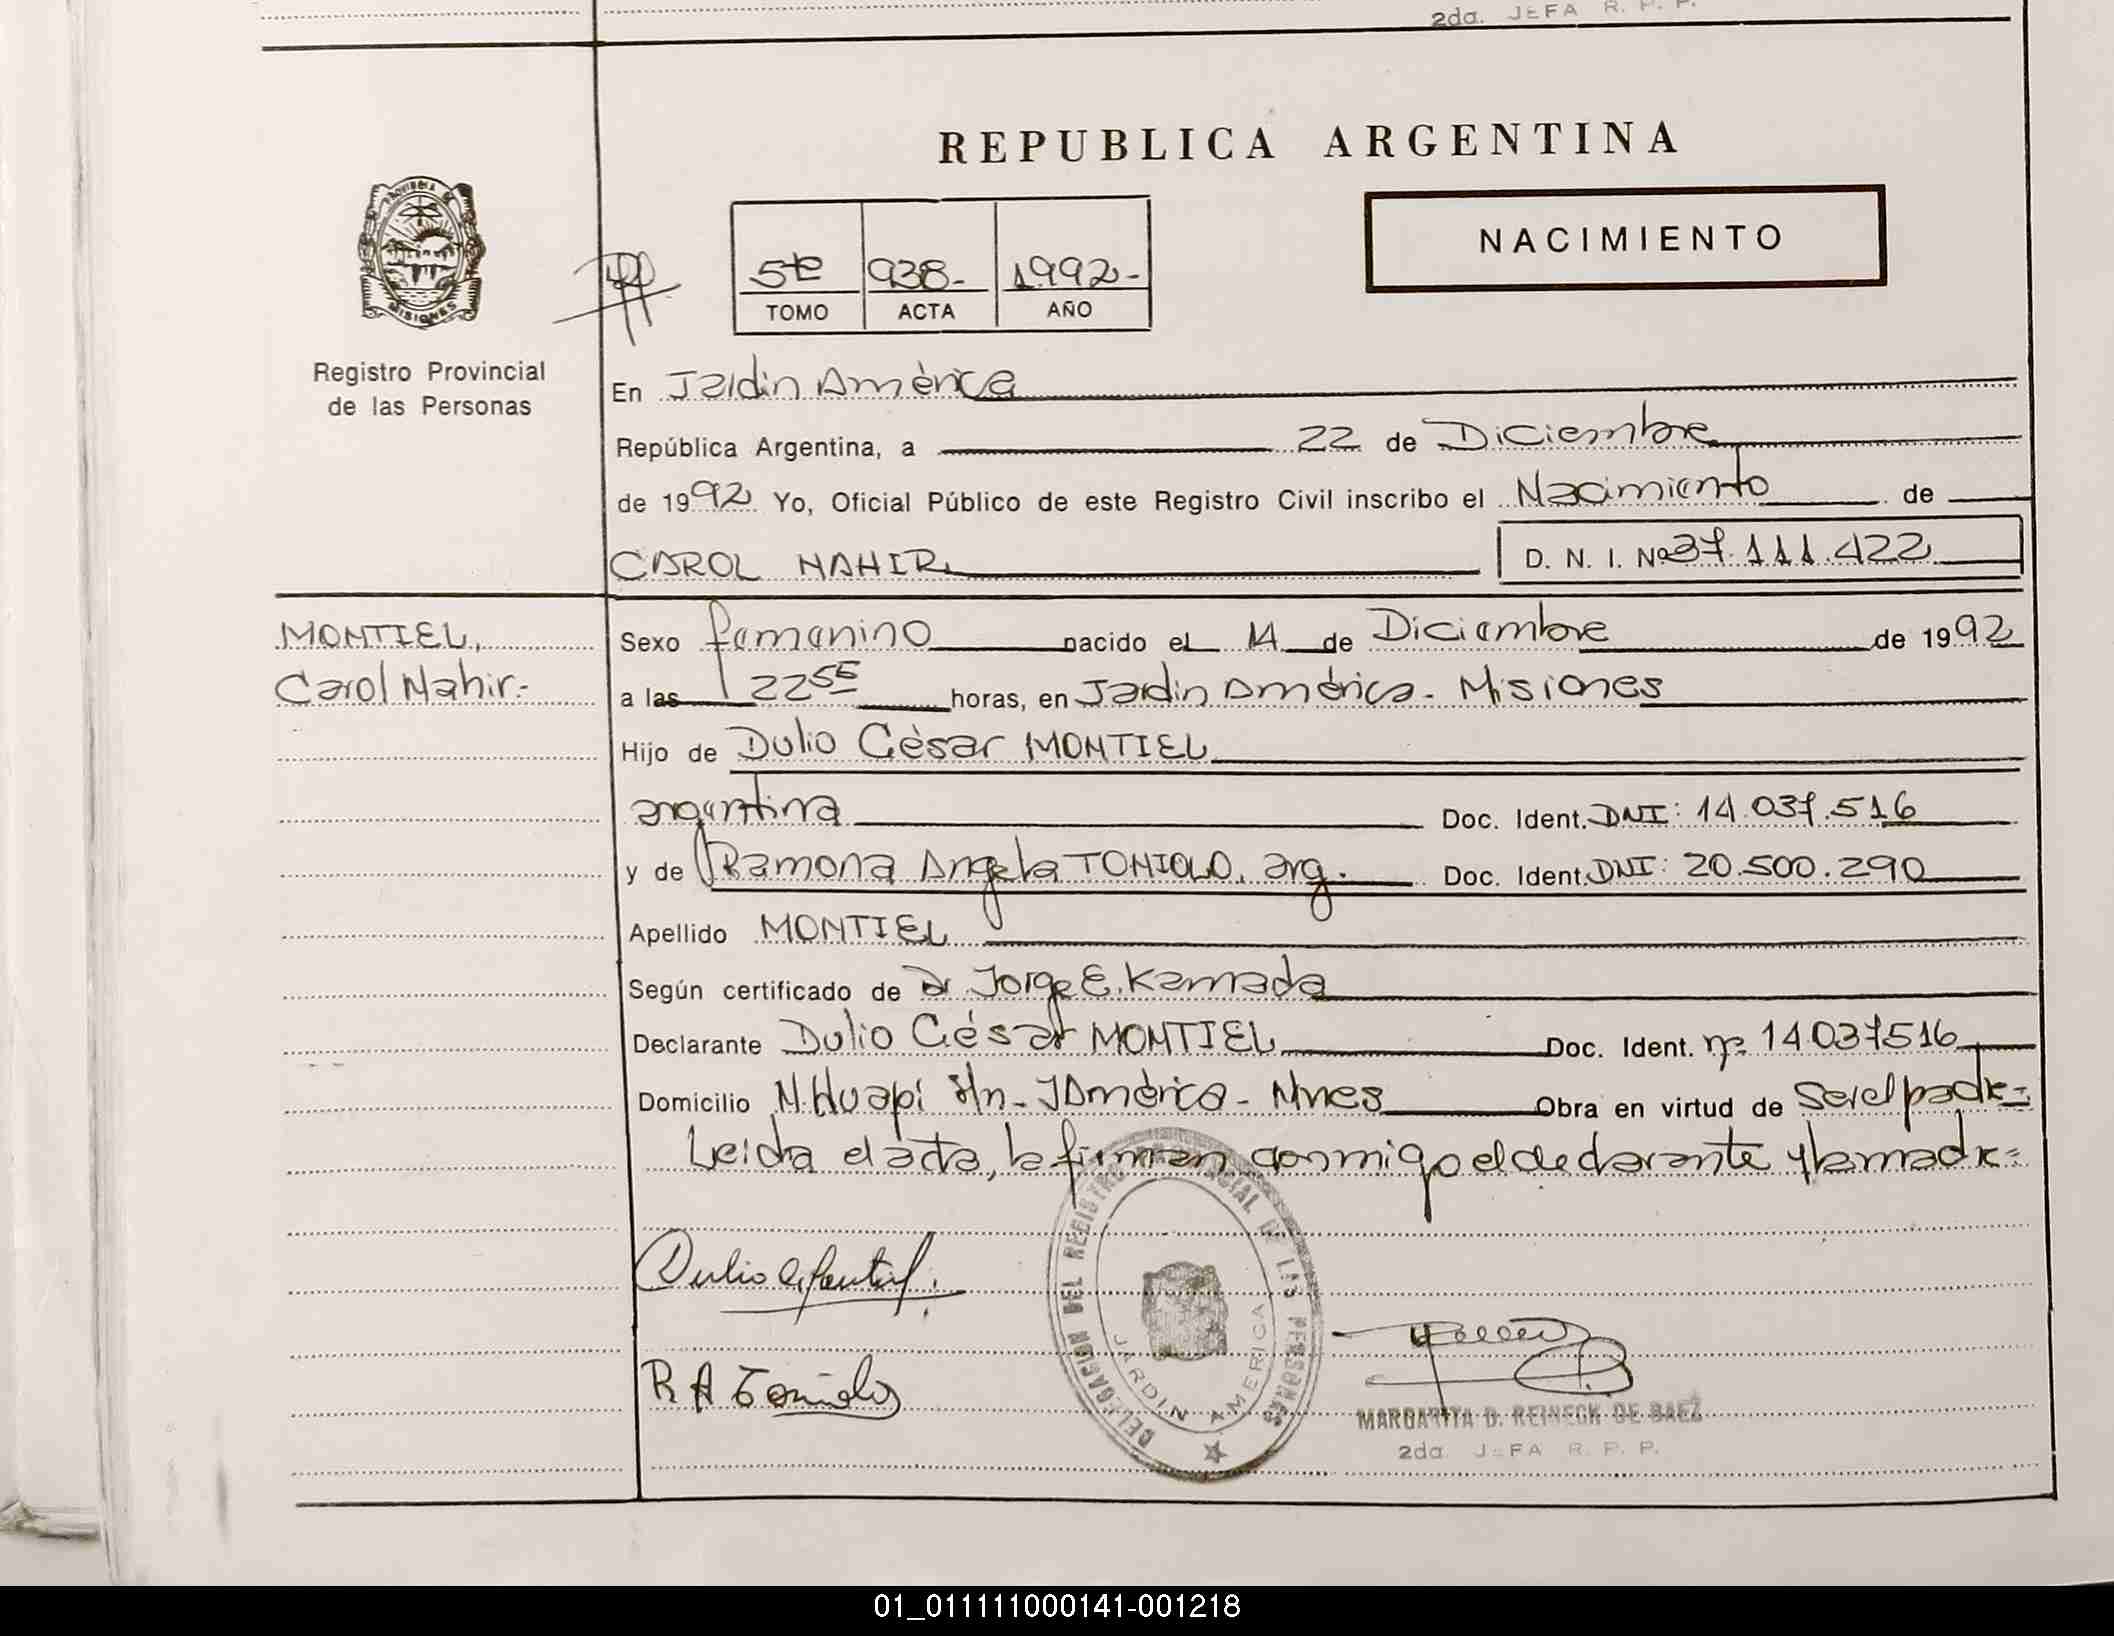 2da. JEFA R. P. P.
REPUBLICA ARGENTINA
PROVINCIA DE
MISIONES
NACIMIENTO
5te 938- 1992-
TOMO ACTA AÑO
Registro Provincial
de las Personas
En Jardin América
República Argentina, a 22 de Diciembre
de 1992 Yo, Oficial Público de este Registro Civil inscribo el Nacimiento de
CAROL NAHIR D. N. I. Nº 37.111.422
MONTIEL,
Carol Nahir.-
Sexo femenino nacido el 14 de Diciembre de 1992
a las 22 55 horas, en Jardin América - Misiones
Hijo de Dulio César MONTIEL
argentina Doc. Ident. DNI: 14.037.516
y de Ramona Angela TONIOLO, arg. Doc. Ident. DNI: 20.500.290
Apellido MONTIEL
Según certificado de Dr Jorge E. Kamada
Declarante Dulio César MONTIEL Doc. Ident. nº 14037516
Domicilio N. Huapi s/n - J América - Mnes Obra en virtud de Ser el padre=
Leida el acta, la firman conmigo el declarante y la madre=
R A Toniolo
DELEGACION DEL REGISTRO PROVINCIAL DE LAS PERSONAS
JARDIN AMERICA
MARGARITA D. REINECK DE BAEZ
2da JEFA R. P. P.
01_011111000141-001218